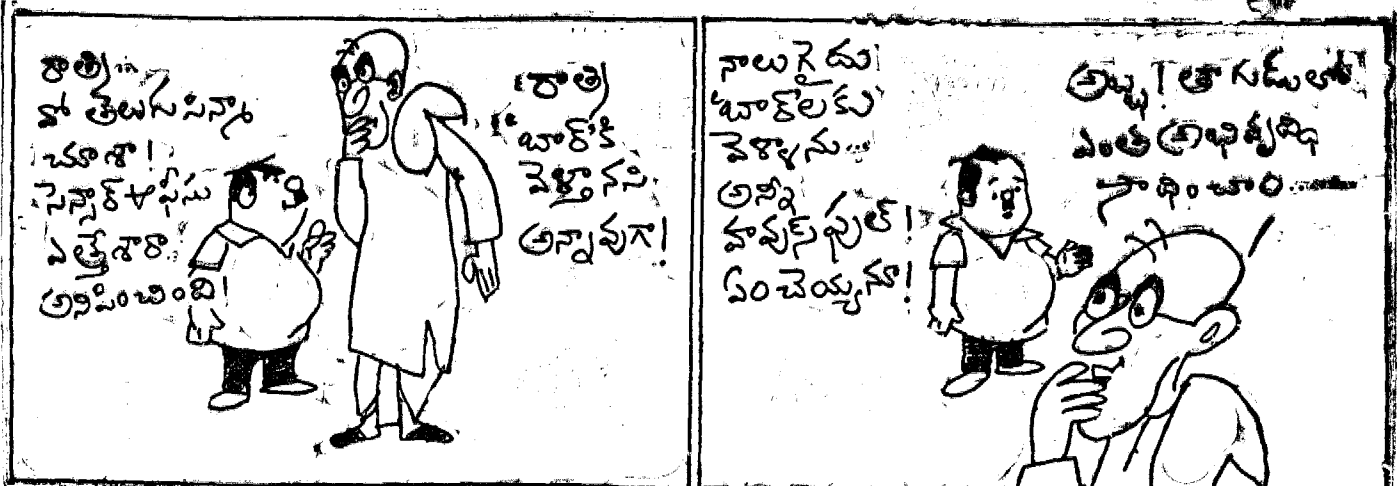 రాత్రి..
ఓ తెలుగు సిన్మా
చూశా!
సెన్సార్ ఆఫీసు
ఎత్తేశారా
అనిపించింది!
రాత్రి
'బార్'కి
వెళ్తానని
అన్నావుగా!
నాలుగైదు
'బార్‌లకు'
వెళ్ళాను..
అన్నీ
హవుస్‌ఫుల్!
ఏం చెయ్యనూ!
అబ్బ! తాగుడులో
ఎంత అభివృద్ధి
సాధించాం.....